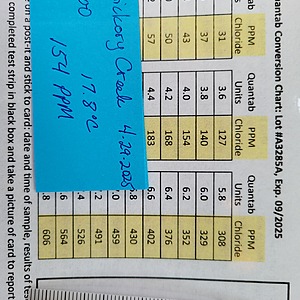 uantab Conversion Chart: Lot #A3285A, Exp. 09/2025
PPM Quantab PPM Quantab PPM
Chloride Units Chloride Units Chloride
31 3.6 127 5.8 308
37 3.8 140 6.0 329
43 4.0 154 6.2 352
50 4.2 168 6.4 376
57 4.4 183 6.6 402
.8 430
.0 459
.2 491
.4 526
.6 564
.8 606
ickory Creek 4-29-2025
00 17.8°C
154 PPM
on a post-it and stick to card: date and time of sample, results of tes
completed test strip in black box and take a picture of card to report